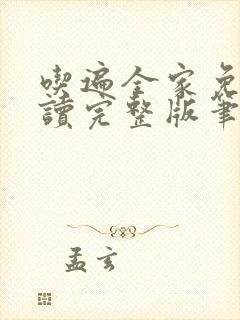 喫遍全家免
讀完整版筆
孟玄